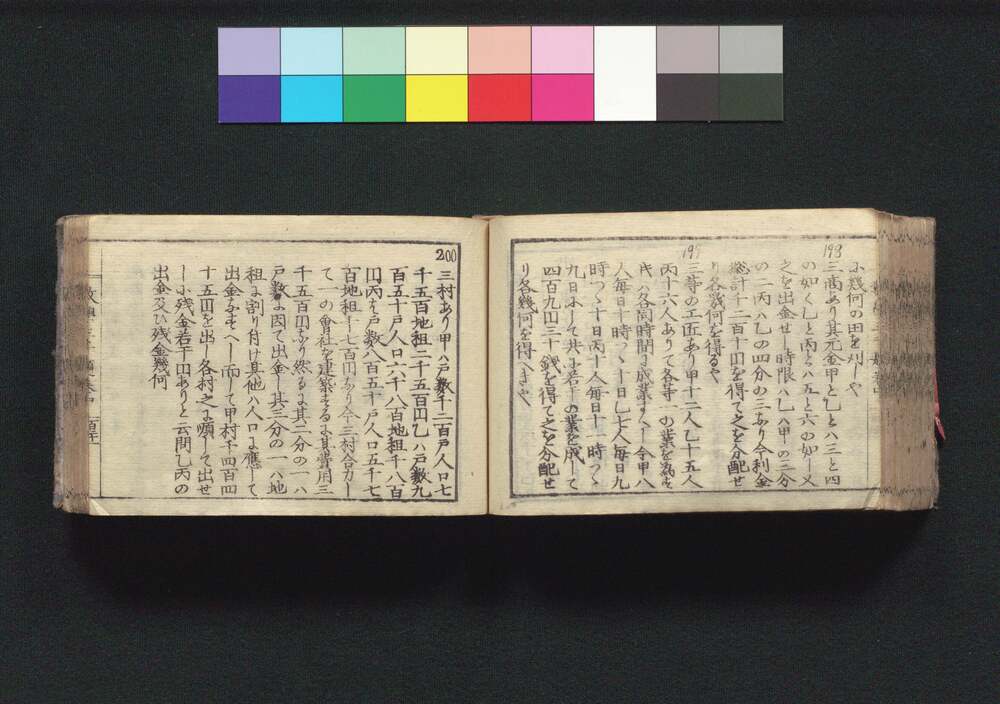 ふ幾何の田を刈しや
198
三商あり其元金甲と乙とハ三と四
の如く乙と丙とハ五と六の如し又
之を出金せし時限ハ乙ハ甲の三分
の二丙ハ乙の四分の三なり今利金
総計千二百十円を得て之を分配せ
り各幾何を得るや
199
三等の工匠あり甲十二人乙十五人
丙十六人ありて各等一の業を為す
時ハ各同時間に成業すへし今甲八
人毎日十時つゝ十日乙七人毎日九
時つゝ十日丙十人毎日十一時つゝ
九日にして共に若干の業を成して
四百九円三十銭を得て之を分配せ
り各幾何を得へきや
200
三村あり甲ハ戸数千二百戸人口七
千五百地租二千五百円乙ハ戸数九
百五十戸人口六千八百地租千八百
円丙は戸数八百五十戸人口五千七
百地租千七百円なり今三村合力し
て一の會社を建築するに其費用三
千五百円なり然るに其二分の一ハ
戸数に因て出金し其三分の一ハ地
租に割り付け其他ハ人口に應して
出金なすへし而して甲村千四百四
十五円を出し各村之に順して出せ
しに残金若干円ありと云問乙丙の
出金及ひ残金幾何